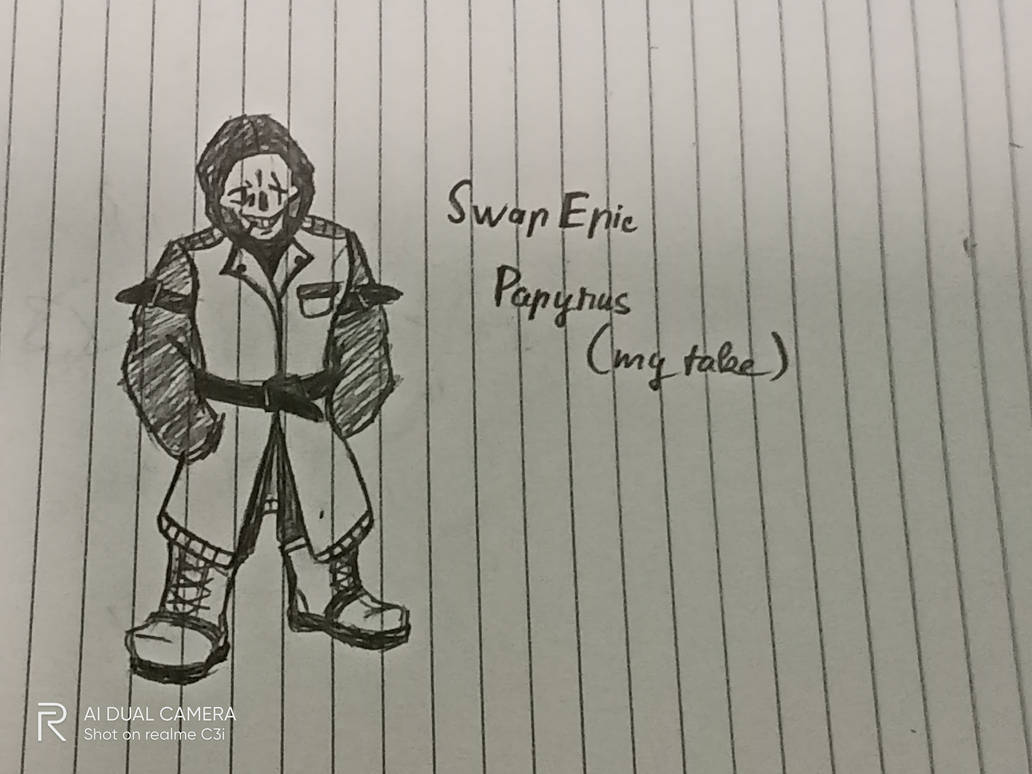 Swap Epic
Papyrus
(my take)
AI DUAL CAMERA
Shot on realme C3i